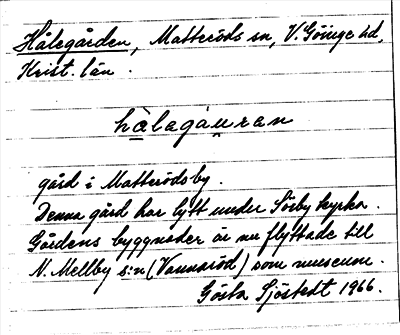 Hålegården, Matteröds sn, V. Göinge hd,
Krist. län.
hålagåuran
gård i Matterödsby.
Denna gård har lytt under Sörby kyrka.
Gårdens byggnader är nu flyttade till
N. Mellby s:n (Vannaröd) som museum.
Gösta Sjöstedt 1966.